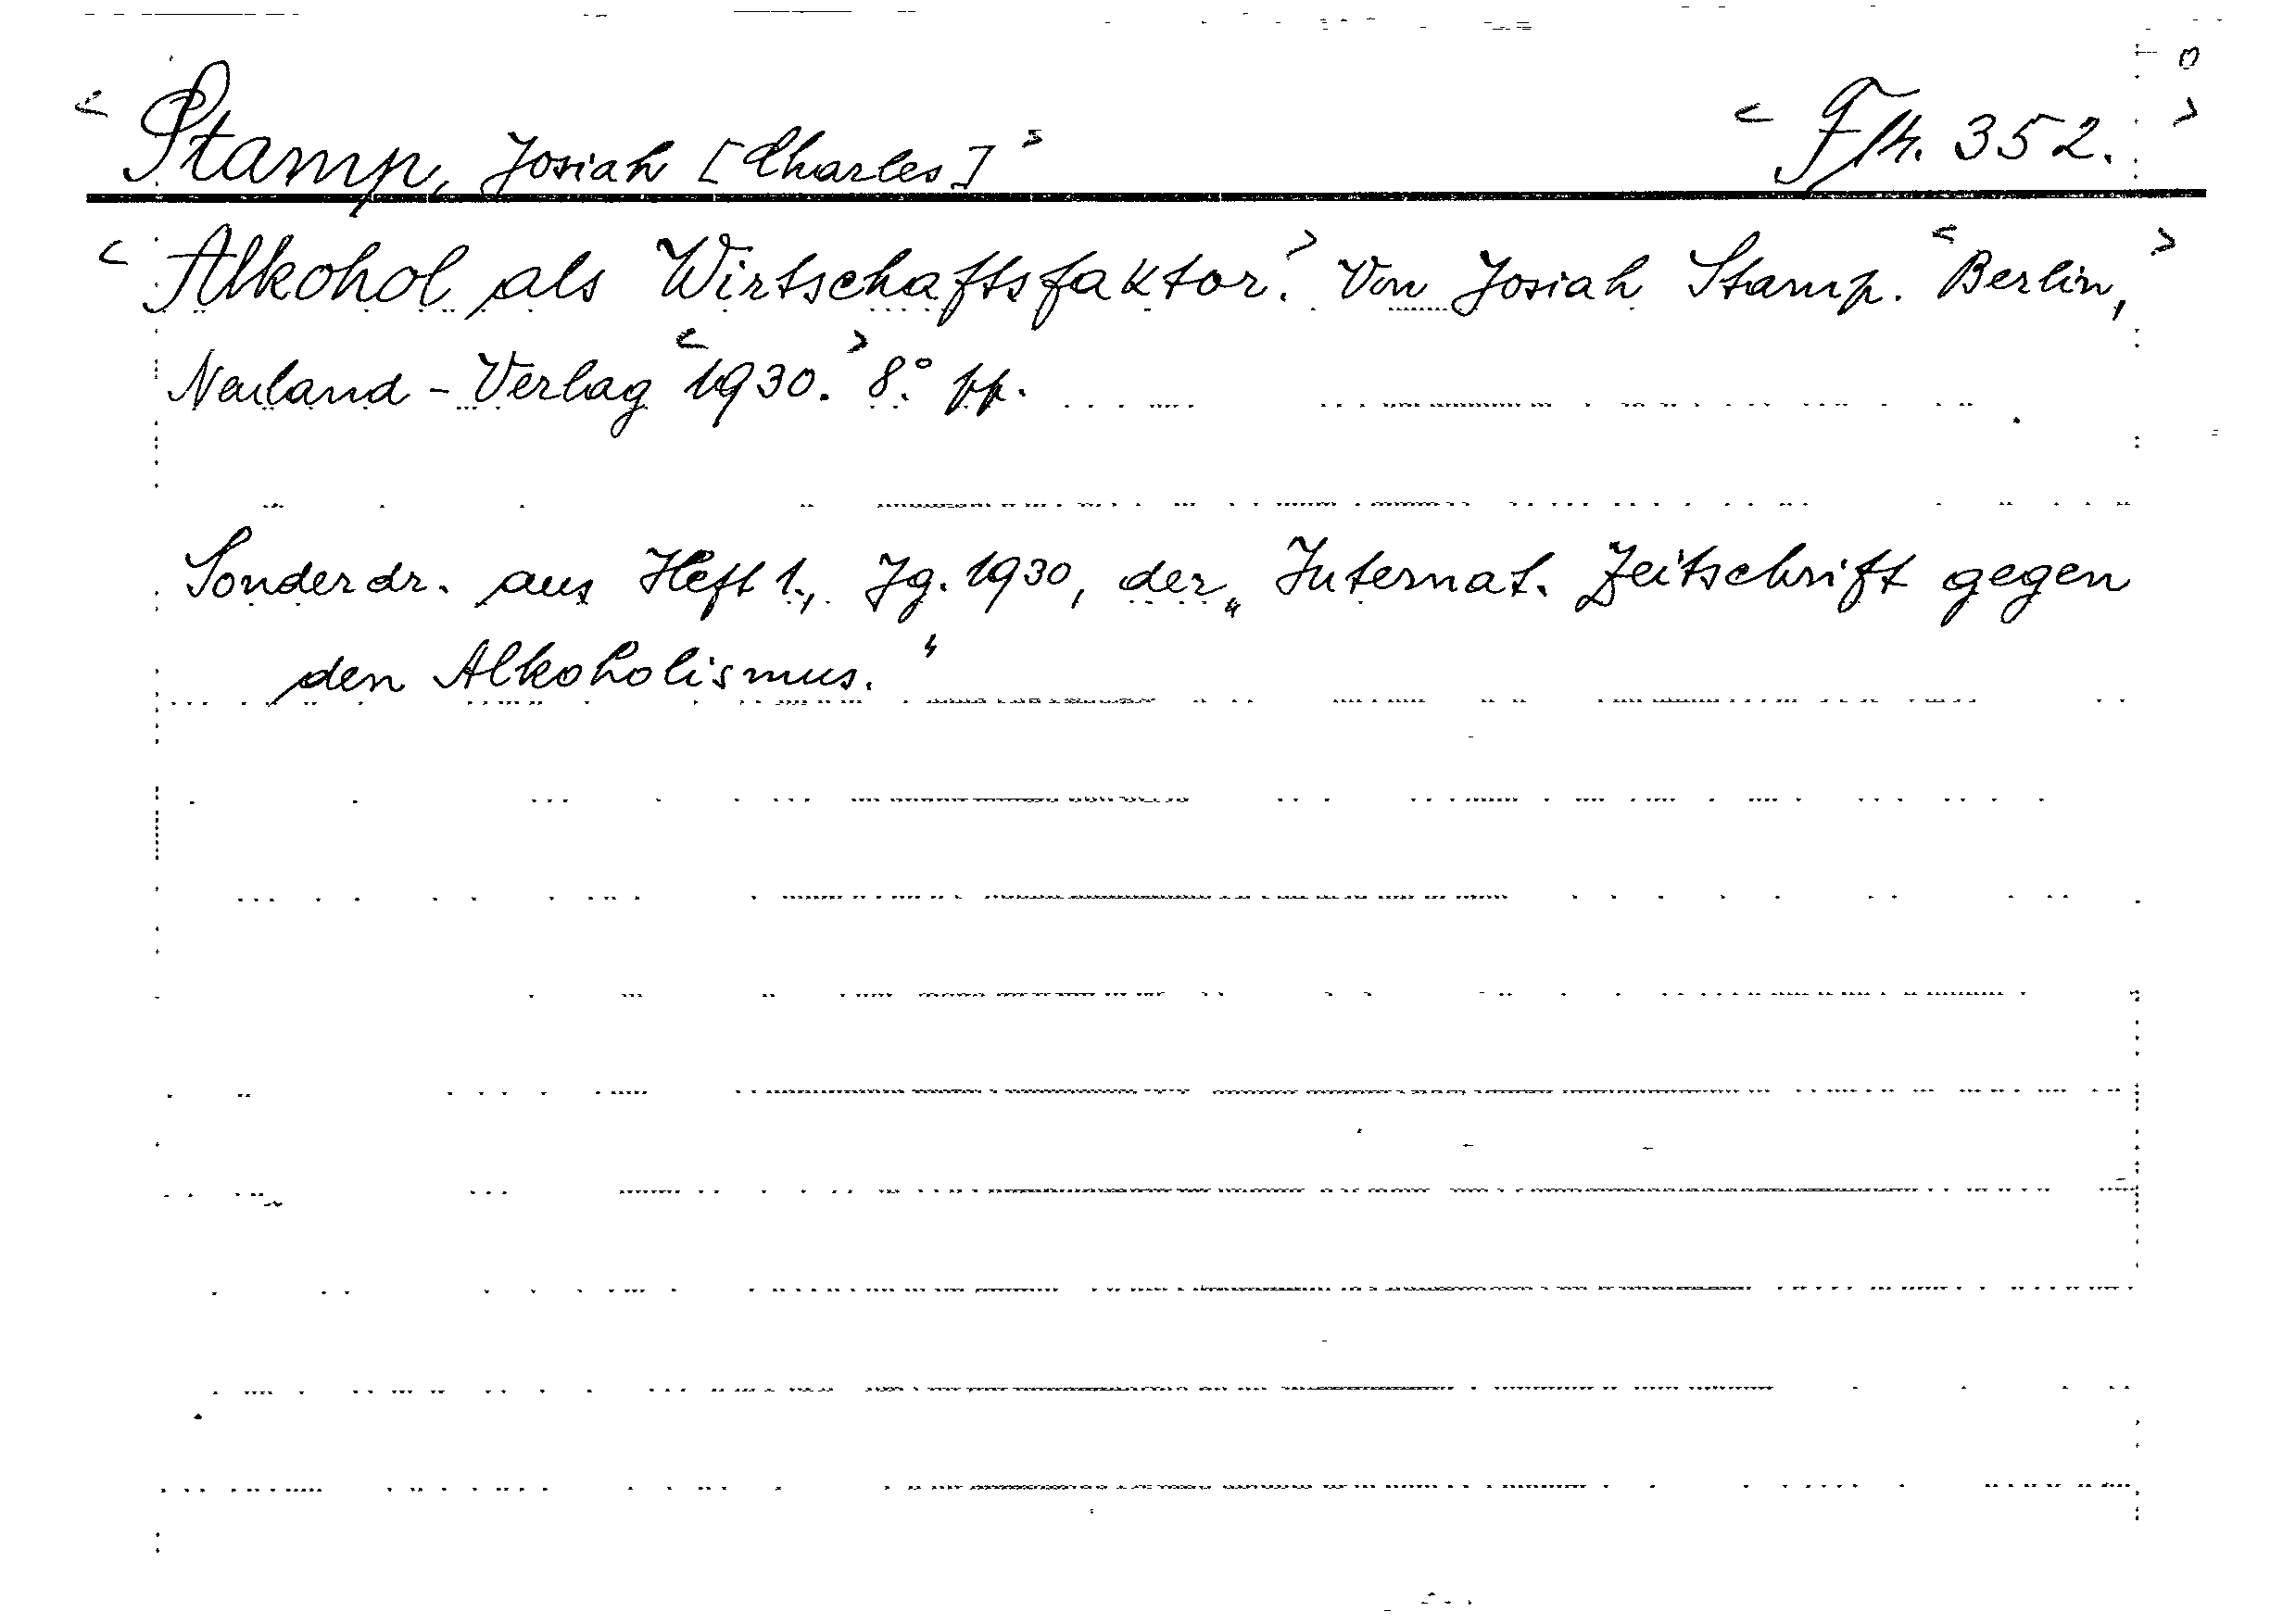 < Stamp, Josiah [Charles] > < Fh. 352. >
< Alkohol als Wirtschaftsfaktor. > Von Josiah Stamp. < Berlin, >
Neuland-Verlag < 1930. > 8.° pp.
Sonderdr. aus Heft 1., Jg. 1930, der „Internat. Zeitschrift gegen
den Alkoholismus."